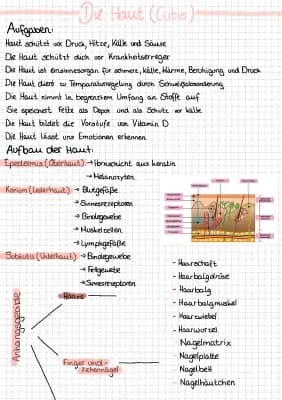 Die Haut (Cutis)
Aufgaben:
Haut schützt vor Druck, Hitze, Kälte und Säure
Die Haut schützt dich vor Krankheitserreger
Die Haut ist ein Sinnesorgan für schmerz, Kälte, Wärme, Berührung und Druck
Die Haut dient zu Temperaturregelung durch Schweißabsonderung
Die Haut nimmt in begrenztem Umfang an Stoff auf
Sie speichert Fette als Depot und als Schutz vor Kälte
Die Haut bildet die Vorstufe von Vitamin D
Die Haut lässt uns Emotionen erkennen
Aufbau der Haut:
Epidermis (Oberhaut) → Hornschicht aus keratin
→ Melanozyten
Korium (Lederhaut) → Blutgefäße
→ Sinnesrezeptoren
→ Bindegewebe
→ Muskelzellen
→ Lymphgefäße
Subkutis (Unterhaut) → Bindegewebe
→ Fettgewebe
→ Sinnesrezeptoren
Anhangsgebilde
Haare
- Haarschaft
- Haarbalgdrüse
- Haarbalg
- Haarbalgmuskel
- Haarzwiebel
- Haarwurzel
Finger und-
Zehennägel
- Nagelmatrix
- Nagelplatte
- Nagelbett
- Nagelhäutchen